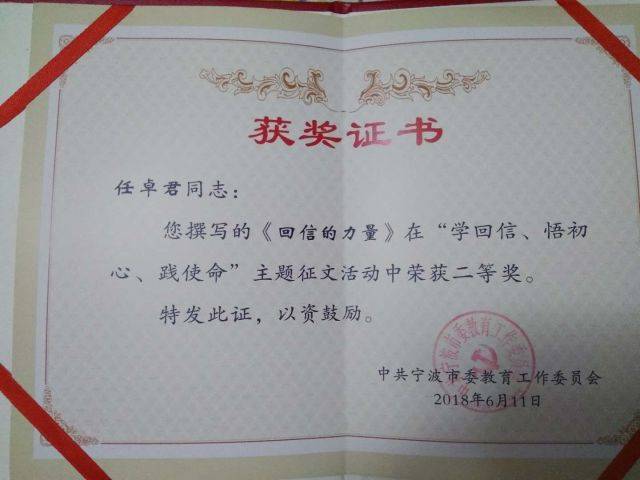 获奖证书
任卓君同志：
您撰写的《回信的力量》在“学回信、悟初
心、践使命”主题征文活动中荣获二等奖。
特发此证，以资鼓励。
中共宁波市委教育工作委员会
2018年6月11日